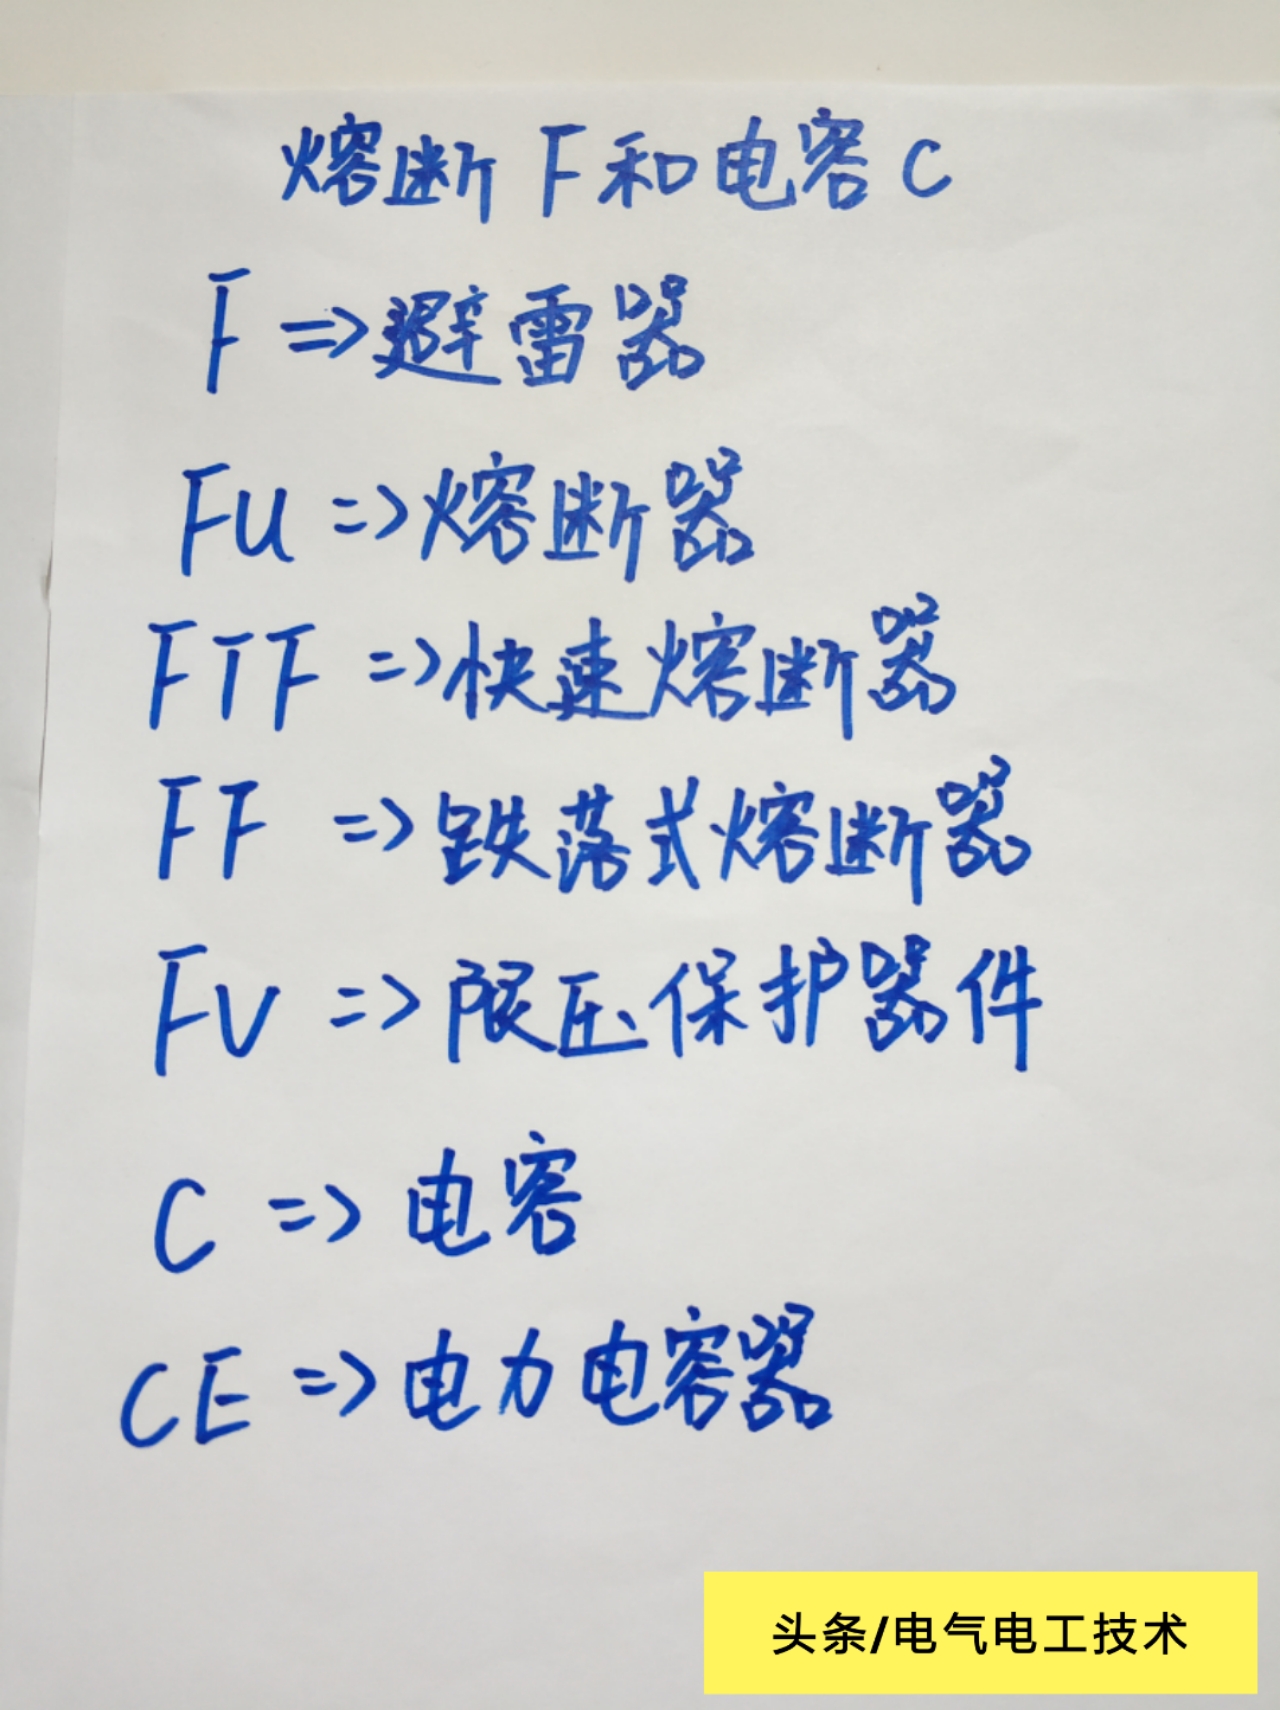 熔断F和电容C
F=>避雷器
FU=>熔断器
FTF=>快速熔断器
FF=>跌落式熔断器
FV=>限压保护器件
C=>电容
CE=>电力电容器
头条/电气电工技术